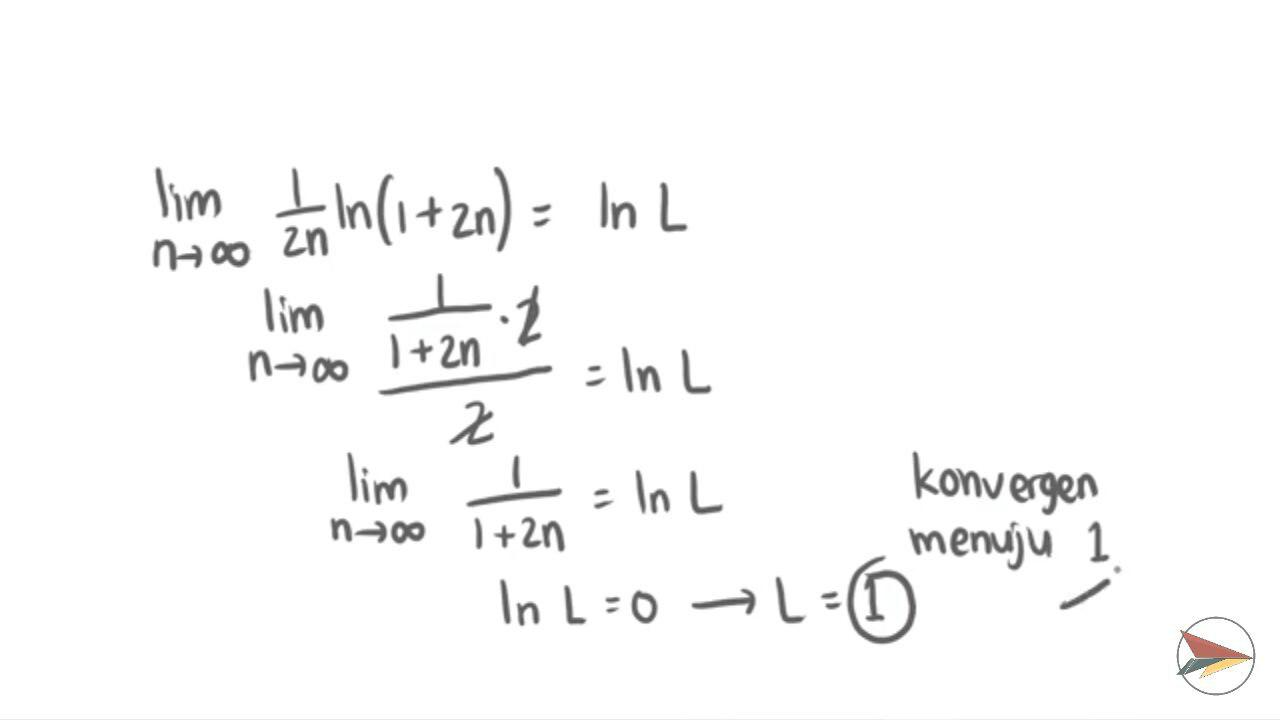 lim n→∞ 1/2n ln(1+2n) = ln L
lim n→∞ (1/(1+2n) · 2)/2 = ln L
lim n→∞ 1/(1+2n) = ln L
ln L = 0 → L = 1
konvergen
menuju 1